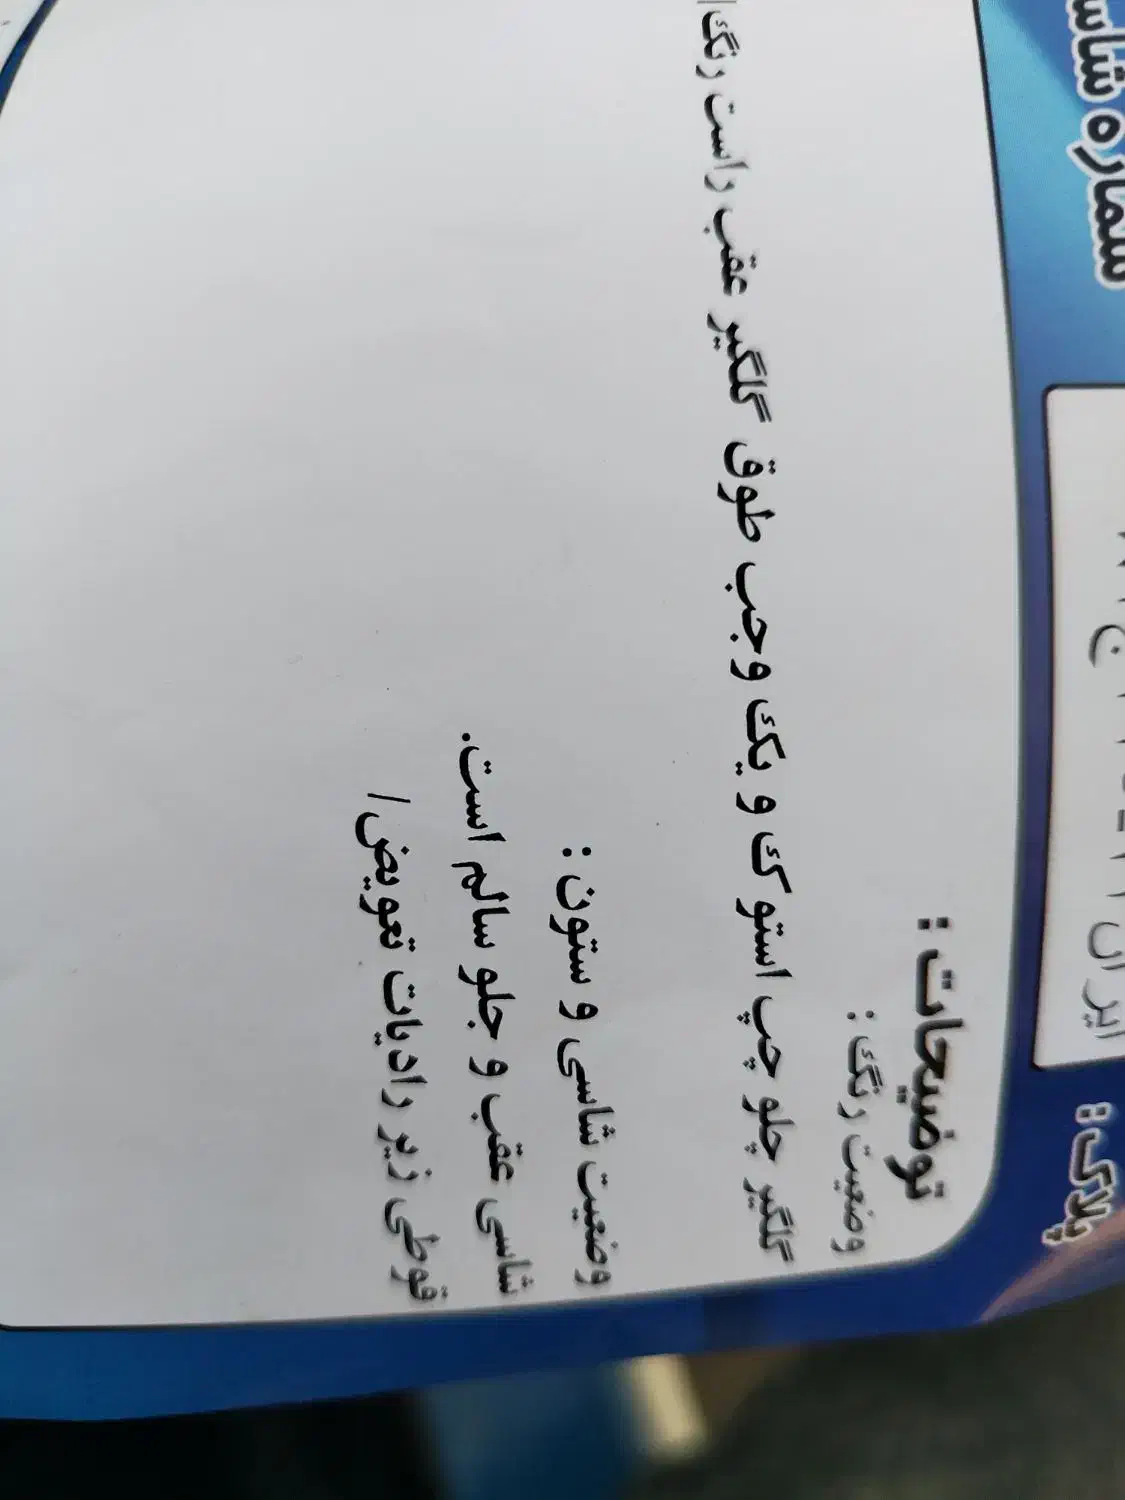 شماره شاس
پلاک:
ایران
توضیحات :
وضعیت رنگ :
گلگیر جلو چپ استوک و یک وجب طوق گلگیر عقب راست رنگ/
وضعیت شاسی و ستون :
شاسی عقب و جلو سالم است.
قوطی زیر رادیات تعویض/